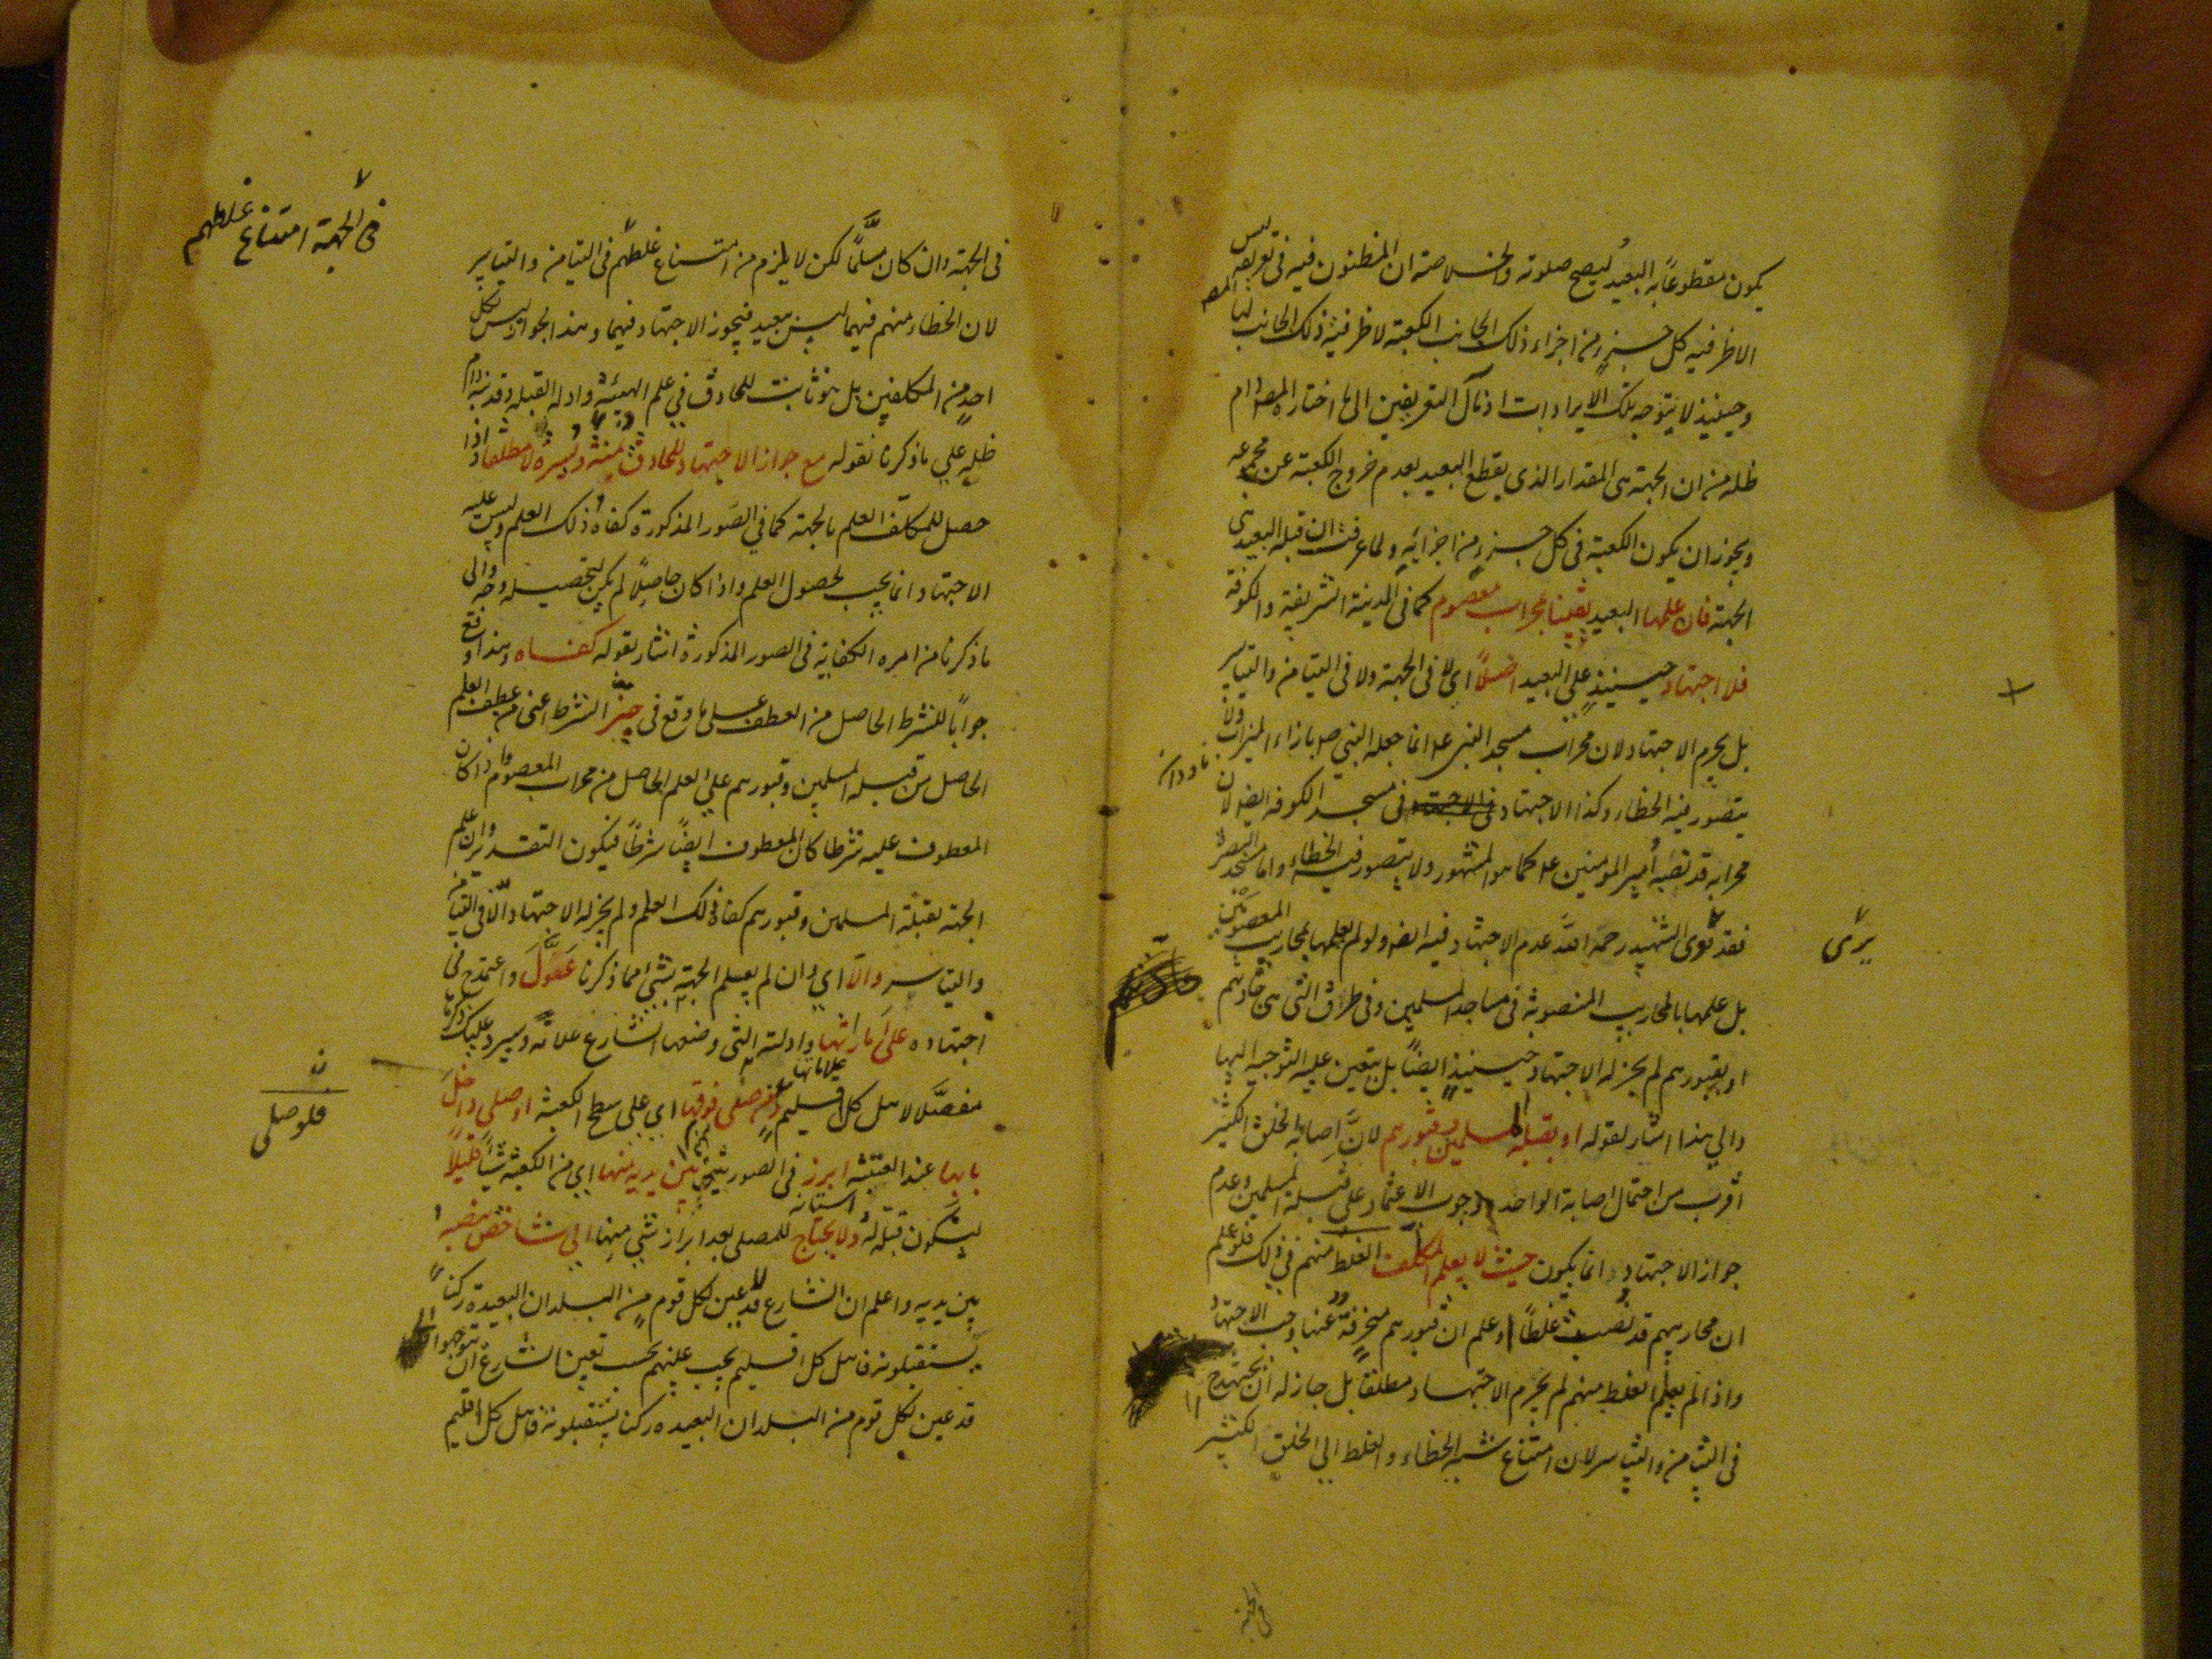 يكون مقطوعاً به البعيد ليصح صلوته والخلاصة ان المظنون فيه فى تعريف المص ليس
الاظرفيه كل جزء من اجزاء ذلك الجانب الكعبة لا ظرفية ذلك الجانب لها
وحينئذ لا يتوجه تلك الايرادات اذ مآل التعريفين الى ما اختاره المص دام
ظله من ان الجهة هى المقدار الذى يقطع البعيد بعدم خروج الكعبة عن مجموعه
ويجوز ان يكون الكعبة فى كل جزء من اجزائه ولما عرفت ان قبلة البعيد هى
الجهة فان علمها البعيد يقينا بمحراب معصوم كما فى المدينة الشريفة والكوفة
فلا اجتهاد حينئذ على البعيد اصلاً اى لا فى الجهة ولا فى التيامن والتياسر
بل يحرم الاجتهاد لان محراب مسجد النبى ص انما جعله النبى ص بازاء الميزاب ولا
ناودان
يتصور فيه الخطاء وكذا الاجتهاد فى مسجد الكوفه ايضا لان
محرابه قد نصبه أمير المؤمنين ع كما هو المشهور ولا يتصور فيه الخطاء واما مسجد البصرة
فقد قوى الشهيد رحمه الله عدم الاجتهاد فيه ايضا ولو لم يعلمها بمحاريب المعصومين
يرى
بل علمها بالمحاريب المنصوبة فى مساجد المسلمين وفى طرق التى هى جادتهم
او بقبورهم لم يجز له الاجتهاد حينئذ ايضاً بل يتعين عليه التوجه اليها
والى هذا اشار بقوله او بقبلة المسلمين وقبورهم لانّ اصابة الخلق الكثير
أقرب من احتمال اصابة الواحد ووجوب الاعتماد على قبلة المسلمين وعدم
جواز الاجتهاد انما يكون حيث لا يعلم المكلف الغلط منهم فى ذلك فلو علم
ان محاريبهم قد نصبت غلطاً وعلم ان قبورهم منحرفة عنها وجب الاجتهاد
واذا لم يعلم الغلط منهم لم يحرم الاجتهاد مطلقاً بل جاز له أن يجتهد
فى التيامن والتياسر لان امتناع نسبة الخطاء والغلط الى الخلق الكثير
فى الجهة
فى الجهة امتناع غلطهم
فى الجهة وان كان مسلّماً لكن لا يلزم من امتناع غلطهم فى التيامن والتياسر
لان الخطاء منهم فيهما ليس ببعيد فيجوز الاجتهاد فيهما وهذا الجواز ليس لكل
احد من المكلفين بل هو ثابت للحاذق فى علم الهيئة وادلة القبلة وقد نبه دام
ظله على ما ذكرنا بقوله مع جواز الاجتهاد للحاذق يمنة ويسرة لا مطلقا اذا
حصل للمكلف العلم بالجهة كما فى الصور المذكورة كفاه ذلك العلم وليس عليه
الاجتهاد انما يجب لحصول العلم واذا كان حاصلاً لم يكن لتحصيله وجه والى
ما ذكرنا من امره الكفاية فى الصور المذكورة اشار بقوله كفاه وهذا وقع
جواباً للشرط الحاصل من العطف على ما وقع فى حيز الشرط اعنى من عطف العلم
الحاصل من قبلة المسلمين وقبورهم على العلم الحاصل من محراب المعصوم واذا كان
المعطوف عليه شرطا كان المعطوف ايضًا شرطاً فيكون التقدير وان علم
الجهة بقبلة المسلمين وقبورهم كفاه ذلك العلم ولم يجز له الاجتهاد الّا فى التيامن
والتياسر والّا اى وان لم يعلم الجهة بشئ مما ذكرنا عَوَّلَ واعتمد فى
اجتهاده على أماراتها وادلته التى وضعها الشارع علامة وسيرد عليك ذكرها
علاماتها
مفصّلا لاهل كل اقليم ومن صلى فوقها اى على سطح الكعبة او صلى داخل
ن
فلو صلى
بابها عند العتبة ابرز فى الصورتين بين يديه منها اى من الكعبة شيئاً قليلاً
استانه
ليكون قبلة له ولا يحتاج للمصلى بعد ابراز شئ منها الى شاخص ينصبه
بين يديه واعلم ان الشارع قد عين لكل قوم من البلدان البعيدة ركنا
يستقبلونه فاهل كل اقليم يجب عليهم بحسب تعيين الشارع ان يتوجهوا الى
قد عين لكل قوم من البلدان البعيده ركنا يستقبلونه فاهل كل اقليم